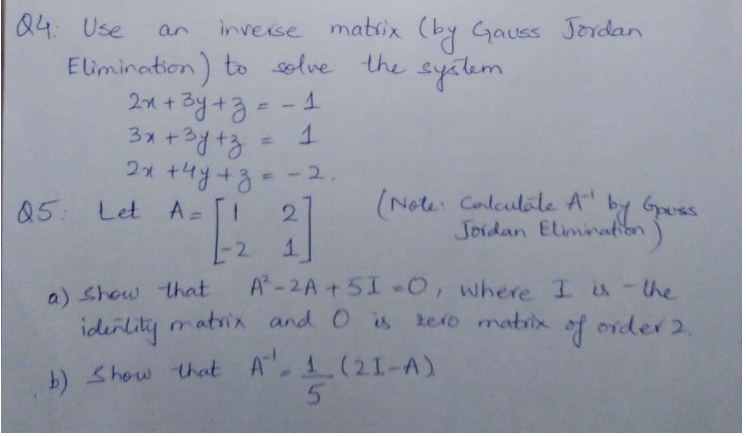 Q4: Use an inverse matrix (by Gauss Jordan
Elimination) to solve the system
2x + 3y + z = - 1
3x + 3y + z = 1
2x + 4y + z = - 2.
Q5: Let A = [1 2
-2 1]
(Note: Calculate A⁻¹ by Gauss
Jordan Elimination)
a) Show that A² - 2A + 5I = O, where I is the
identity matrix and O is zero matrix of order 2.
b) Show that A⁻¹ = 1/5 (2I - A)